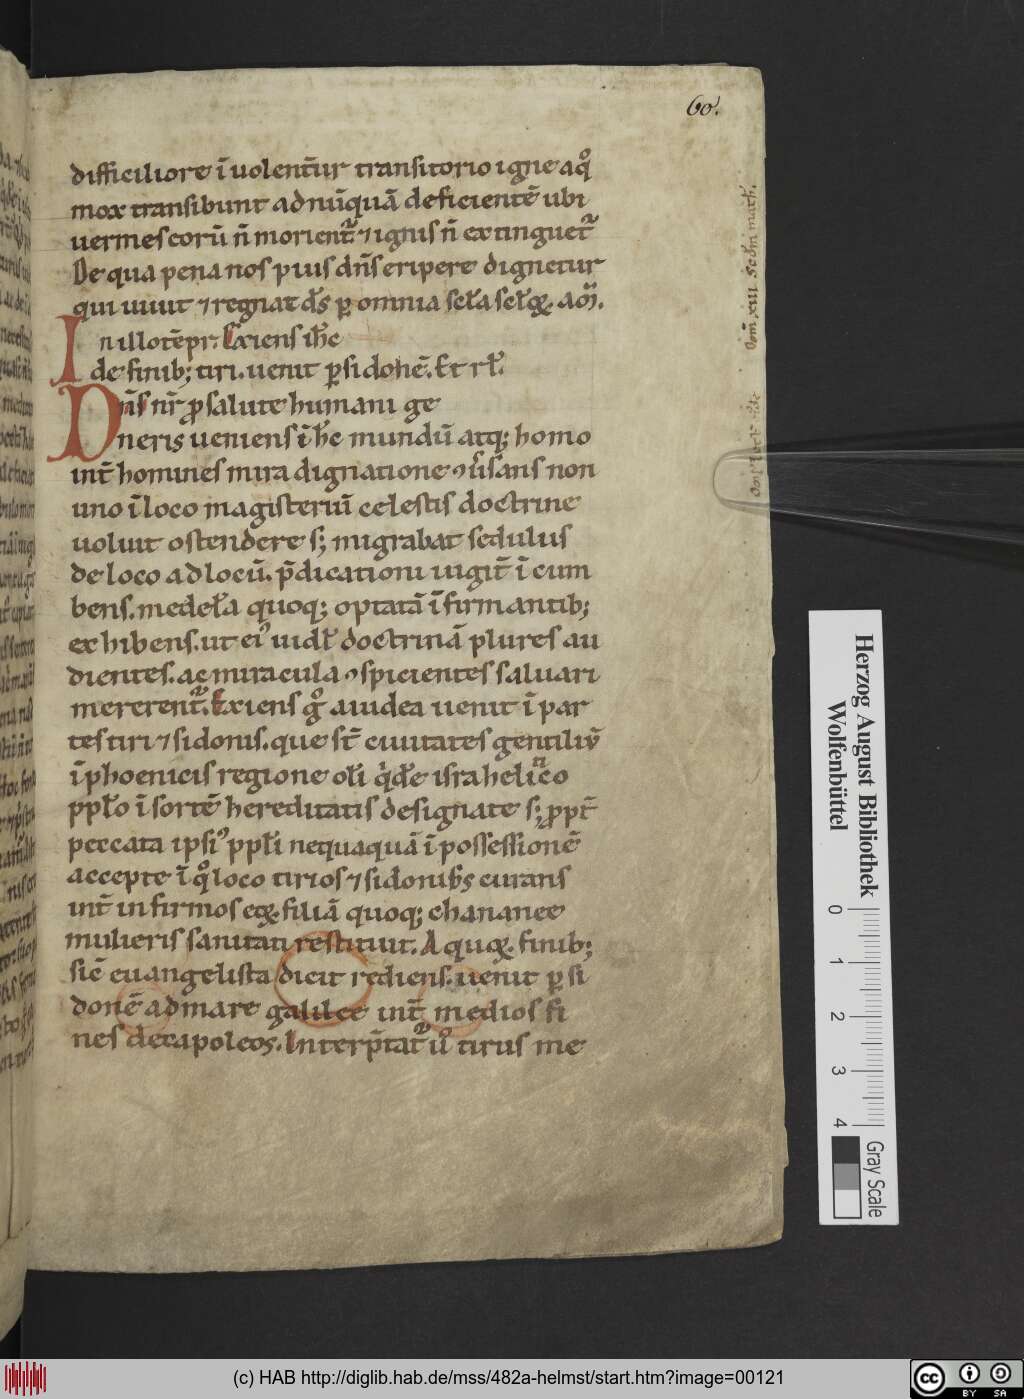 60.
difficiliore ī uolent̄ur transitorio igne aq̊
mox transibunt ad nūquā deficientē ubi
uermes eorū n̄ morient᷑ ⁊ ignis n̄ extinguet᷑
De qua pena nos pius dn̄s eripere dignetur
qui uiuit ⁊ regnat dꝰs ꝑ omnia scl̄a scl̄oꝝ. am̄.
In illo tēpr. Exiens ih̄c
de finib; tiri. uenit ꝑ sidonē. Et rl̄.
Dn̄s nr̄ ꝓ salute humani ge
neris ueniens ī h̄c mundū atq; homo
int̄ homines mira dignatione ꝯūsans non
uno ī loco magisteriū celestis doctrine
uoluit ostendere s; migrabat sedulus
de loco ad locū. p̄dicationi uigit̄ īcum
bens. medel̄a quoq; optatā īfirmantib;
exhibens. ut eiꝰ uidl̄ doctrinā plures au
dientes. ac miracula ꝯspicientes saluari
mererent᷑. Exiens g̊ aiudea uenit ī par
tes tiri ⁊ sidonis. que st̄ ciuitates gentiliū
ī phoenicis regione oli q̇de israhelitico
ppl̄o ī sortē hereditatis designate s; ꝓpt̄
peccata ipsiꝰ ppl̄i nequaquā ī possessionē
accepte ī q̊ loco tirios ⁊ sidonios curans
int̄ infirmos eoꝝ. filiā quoq; chananee
mulieris sanitati restituit. A quoꝝ. finib;
sic̄ euangelista dicit rediens. uenit ꝑ si
donē ad mare galilee int̄ medios fi
nes decapoleos. Interp̄tat᷑ ū tirus me
Herzog August Bibliothek
Wolfenbüttel
0 1 2 3 4
Gray Scale
(c) HAB http://diglib.hab.de/mss/482a-helmst/start.htm?image=00121
cc BY SA